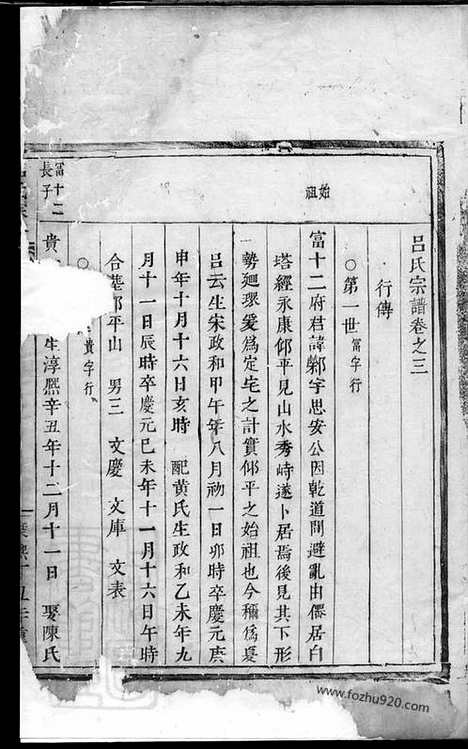 呂氏宗譜卷之三
行傳
○第一世富字行
始祖
富十二府君諱鄴字思安公因乾道間避亂由僊居白
塔經永康仰平見山水秀峙遂卜居焉後見其下形
勢廻環爰為定宅之計實仰平之始祖也今稱為夏
呂云生宋政和甲午年八月初一日卯時卒慶元庚
申年十月十六日亥時 配黃氏生政和乙未年九
月十一日辰時卒慶元己未年十一月十六日午時
合墓仰平山 男三 文慶 文庫 文表
○ 貴字行
富十二長子
貴 生淳熙辛丑年十二月十一日 娶陳氏
www.fozhu920.com